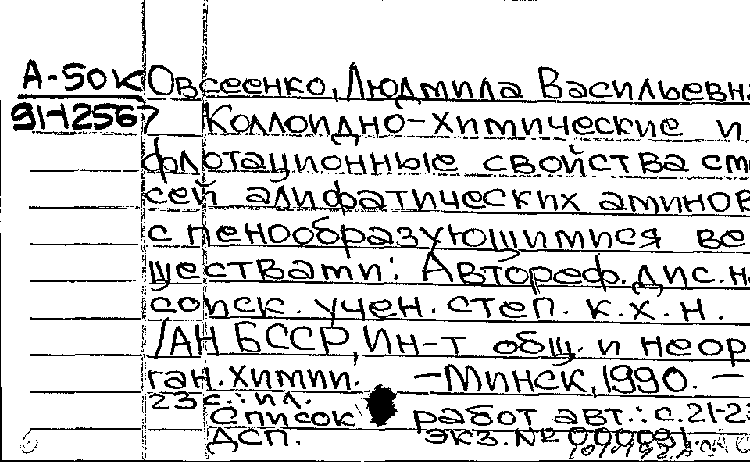 А-50к Овсеенко, Людмила Васильевна
91-12567 Коллоидно-химические и
флотационные свойства сме
сей алифатических аминов
с пенообразующимися ве
ществами: Автореф. дис. н
соиск. учен. степ. к.х.н.
/АН БССР, Ин-т общ. и неор
ган. химии. —Минск, 1990. —
23 с.: ил.
Список работ авт.: с. 21-23
ДСП. экз. №